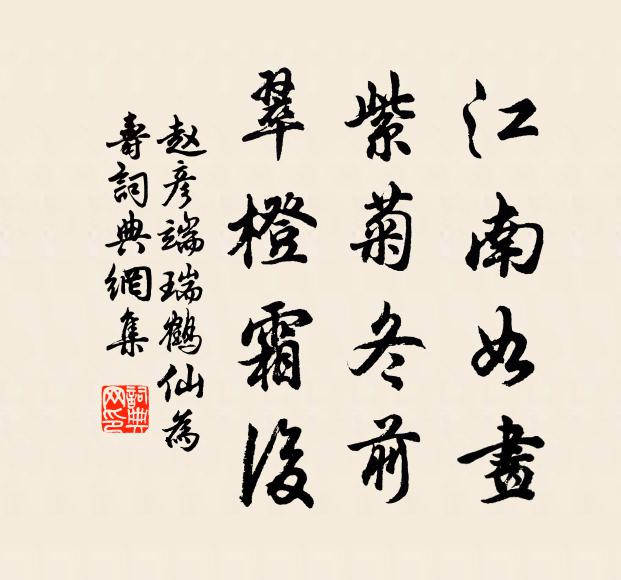 江南如畫
紫菊冬前
翠橙霜後
赵彥端瑞鶴仙為
壽詞典網集
詞典網印